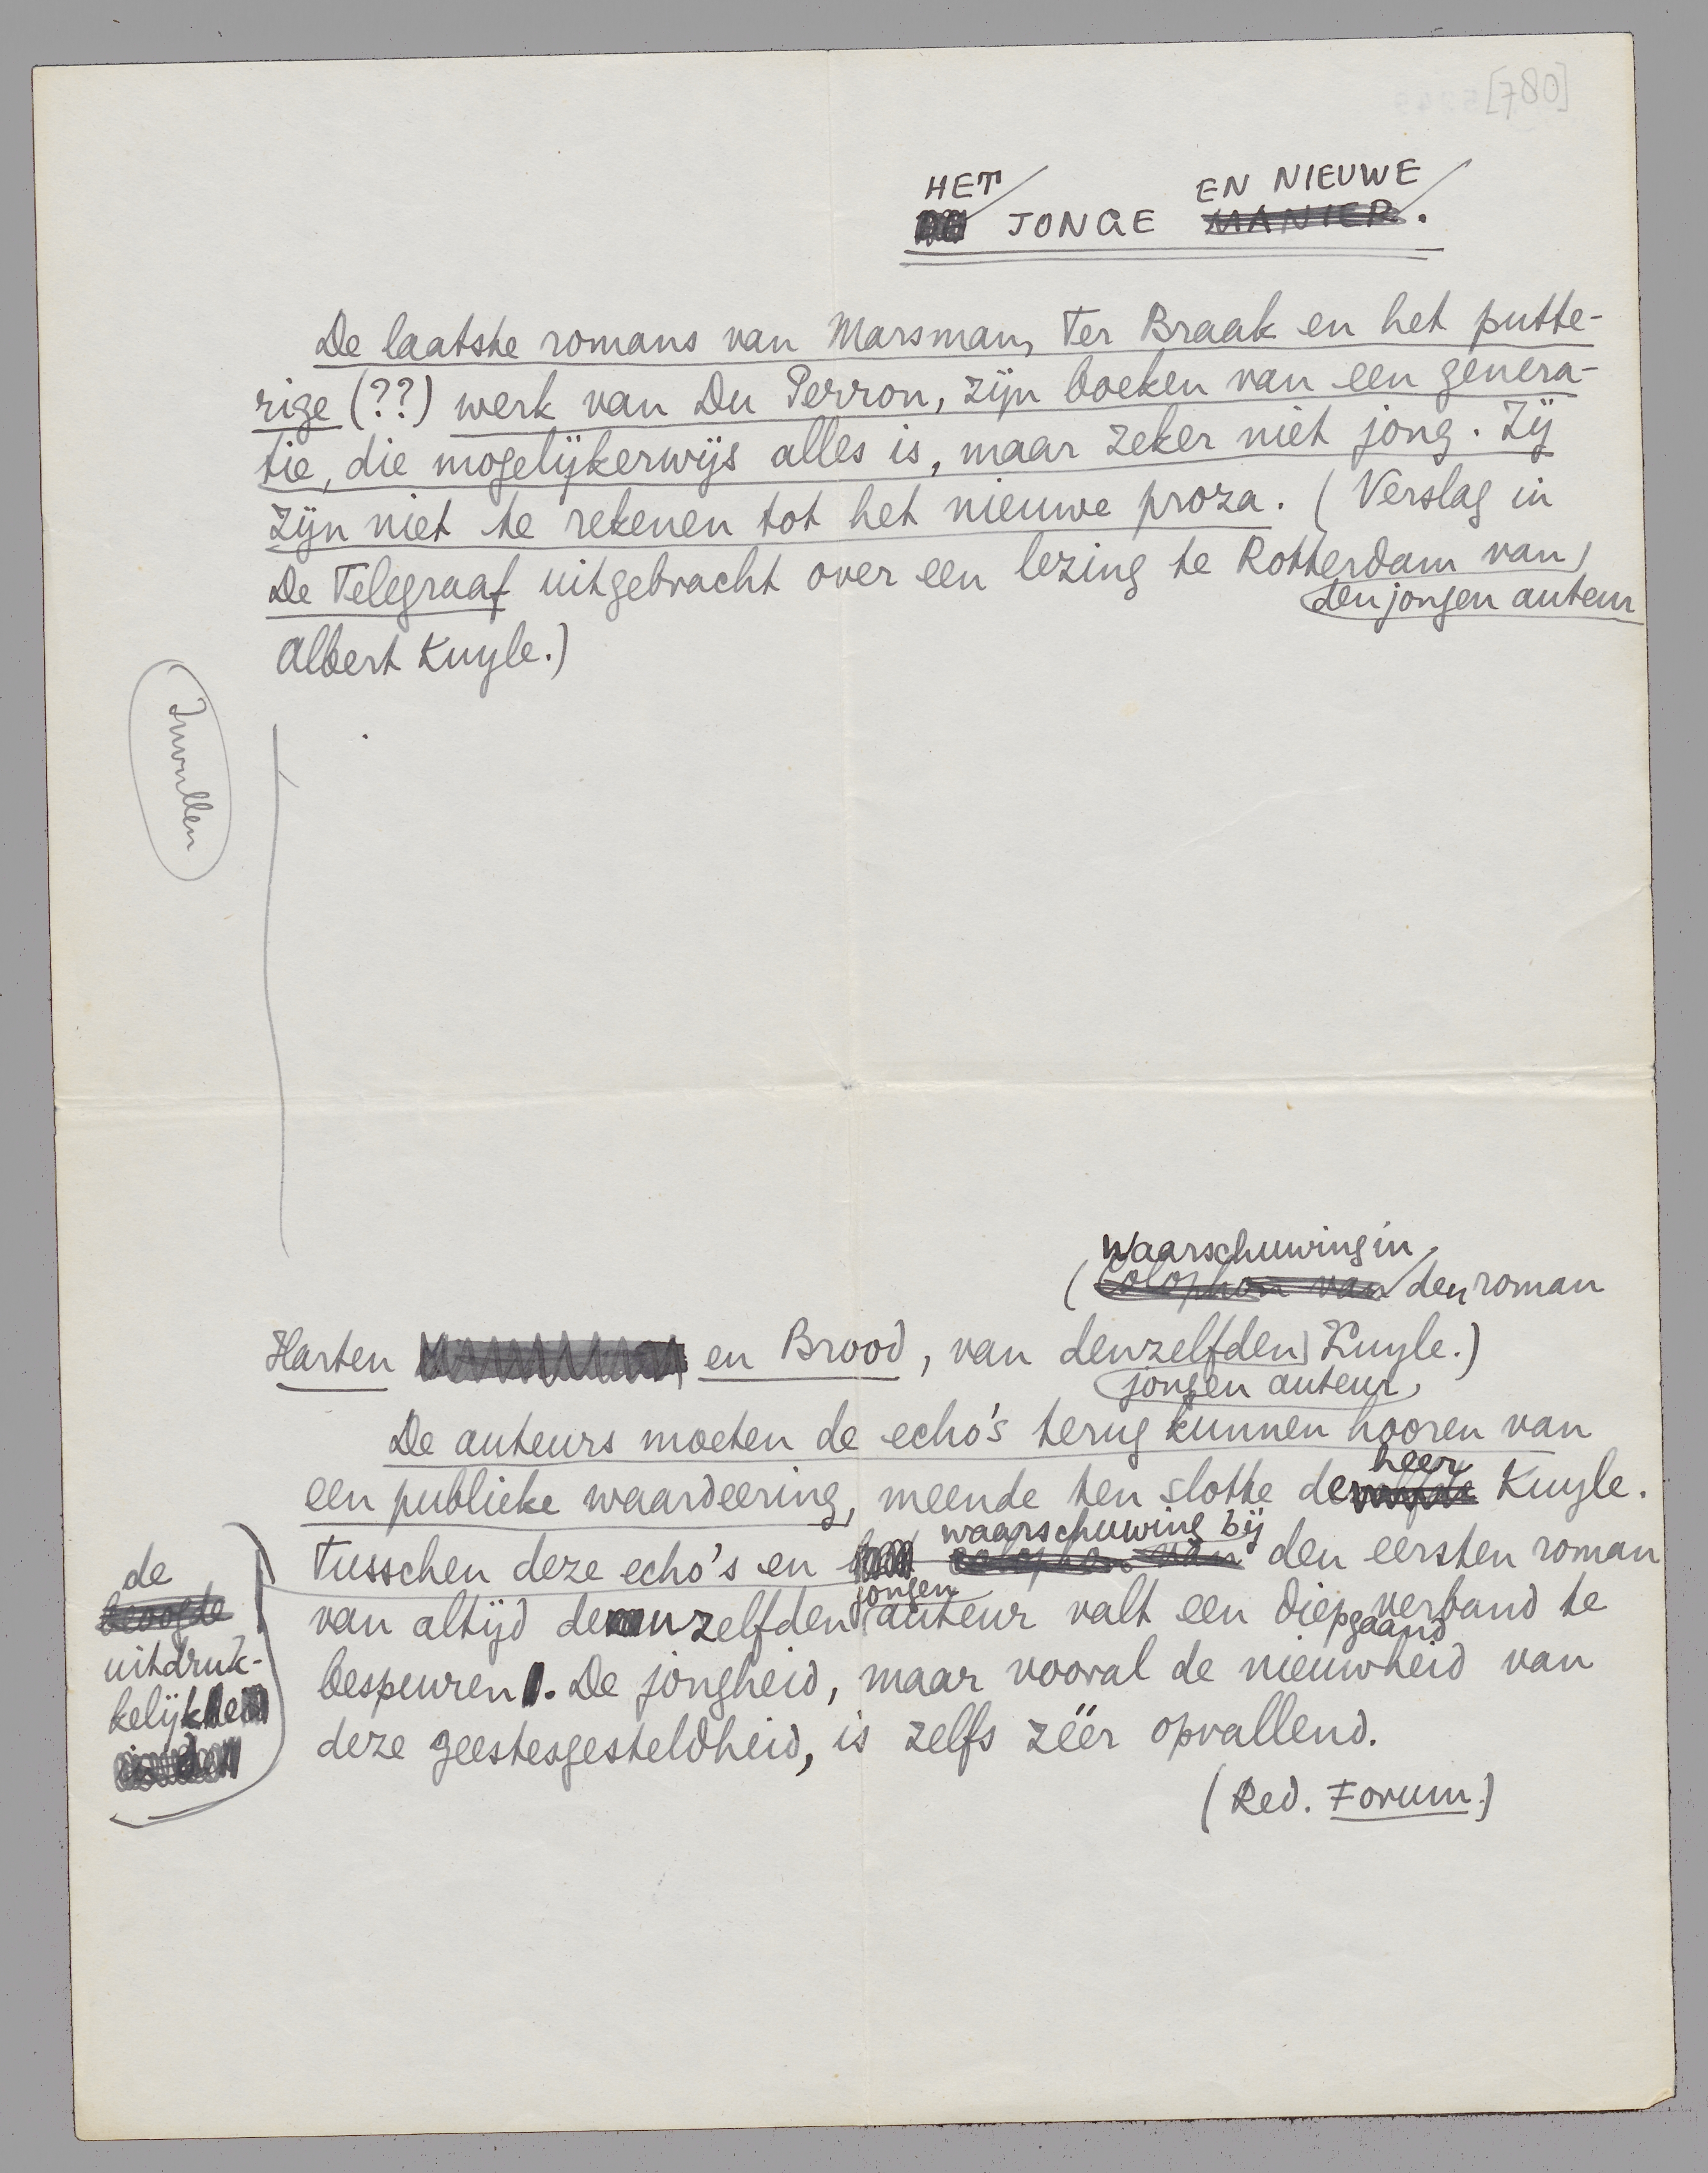 [780]
HET EN NIEUWE
JONGE MANIER.
De laatste romans van Marsman, ter Braak en het putte-
rige (??) werk van Du Perron, zijn boeken van een genera-
tie, die mogelijkerwijs alles is, maar zeker niet jong. Zij
zijn niet te rekenen tot het nieuwe proza. (Verslag in
De Telegraaf uitgebracht over een lezing te Rotterdam van
den jongen auteur
Albert Kuyle.)
Invullen
waarschuwing in
(Colophon van den roman
Harten en Brood, van denzelfden Kuyle.)
jongen auteur
De auteurs moeten de echo's terug kunnen hooren van
een publieke waardeering, meende ten slotte de heer Kuyle.
waarschuwing bij
Tusschen deze echo's en colophon van den eersten roman
jongen
van altijd denzelfden auteur valt een diepgaand verband te
bespeuren. De jongheid, maar vooral de nieuwheid van
deze geestesgesteldheid, is zelfs zéér opvallend.
(Red. Forum.)
de
beoogde
uitdruk-
kelijk